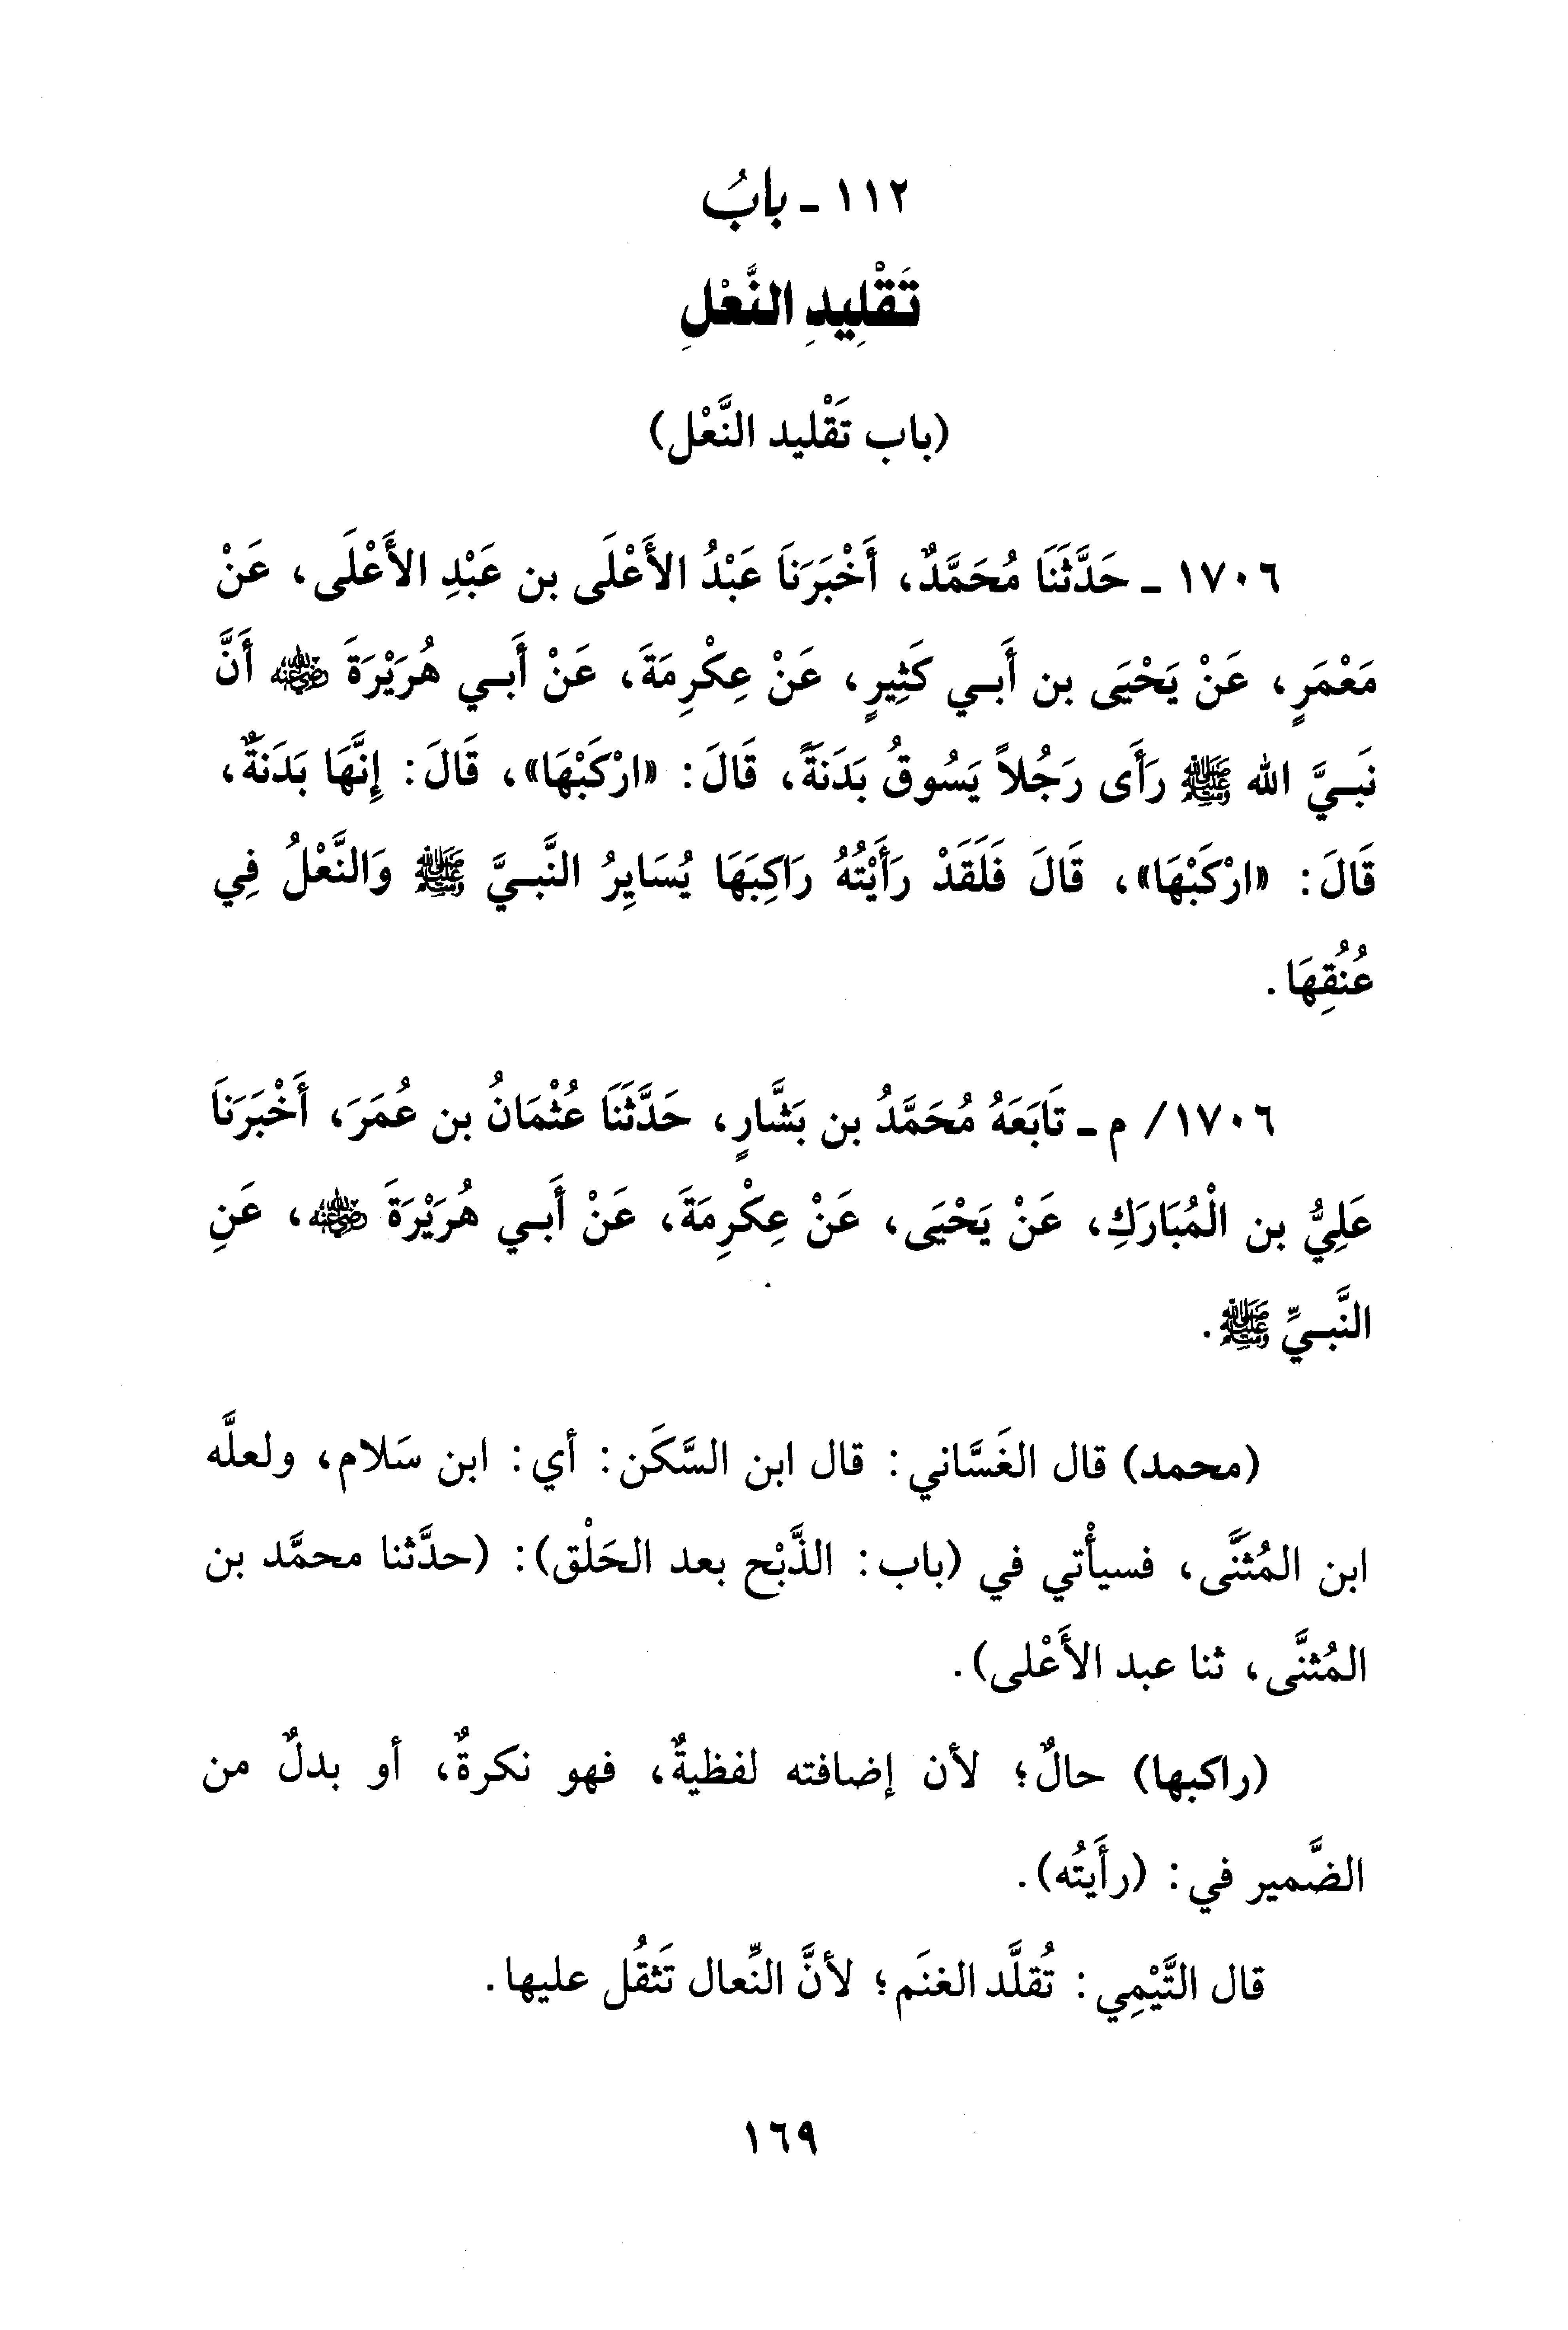 ١١٢ - بابُ
تَقْلِيدِ النَّعْلِ
(باب تَقْليد النَّعْل)
١٧٠٦ - حَدَّثَنَا مُحَمَّدٌ، أَخْبَرَنَا عَبْدُ الأَعْلَى بن عَبْدِ الأَعْلَى، عَنْ
مَعْمَرٍ، عَنْ يَحْيَى بن أَبي كَثِيرٍ، عَنْ عِكْرِمَةَ، عَنْ أَبي هُرَيْرَةَ رضي الله عنه أَنَّ
نَبيَّ الله ﷺ رَأَى رَجُلاً يَسُوقُ بَدَنَةً، قَالَ: «ارْكَبْهَا»، قَالَ: إِنَّهَا بَدَنَةٌ،
قَالَ: «ارْكَبْهَا»، قَالَ فَلَقَدْ رَأَيْتُهُ رَاكِبَهَا يُسَايِرُ النَّبيَّ ﷺ وَالنَّعْلُ فِي
عُنُقِهَا.
١٧٠٦/ م - تَابَعَهُ مُحَمَّدُ بن بَشَّارٍ، حَدَّثَنَا عُثْمَانُ بن عُمَرَ، أَخْبَرَنَا
عَلِيُّ بن الْمُبَارَكِ، عَنْ يَحْيَى، عَنْ عِكْرِمَةَ، عَنْ أَبي هُرَيْرَةَ رضي الله عنه، عَنِ
النَّبيِّ ﷺ.
(محمد) قال الغَسَّاني: قال ابن السَّكَن: أي: ابن سَلام، ولعلَّه
ابن المُثنَّى، فسيأْتي في (باب: الذَّبْح بعد الحَلْق): (حدَّثنا محمَّد بن
المُثنَّى، ثنا عبد الأَعْلى).
(راكبها) حالٌ؛ لأن إضافته لفظيةٌ، فهو نكرةٌ، أو بدلٌ من
الضَّمير في: (رأَيتُه).
قال التَّيْمِي: تُقلَّد الغنَم؛ لأنَّ النِّعال تَثقُل عليها.
١٦٩